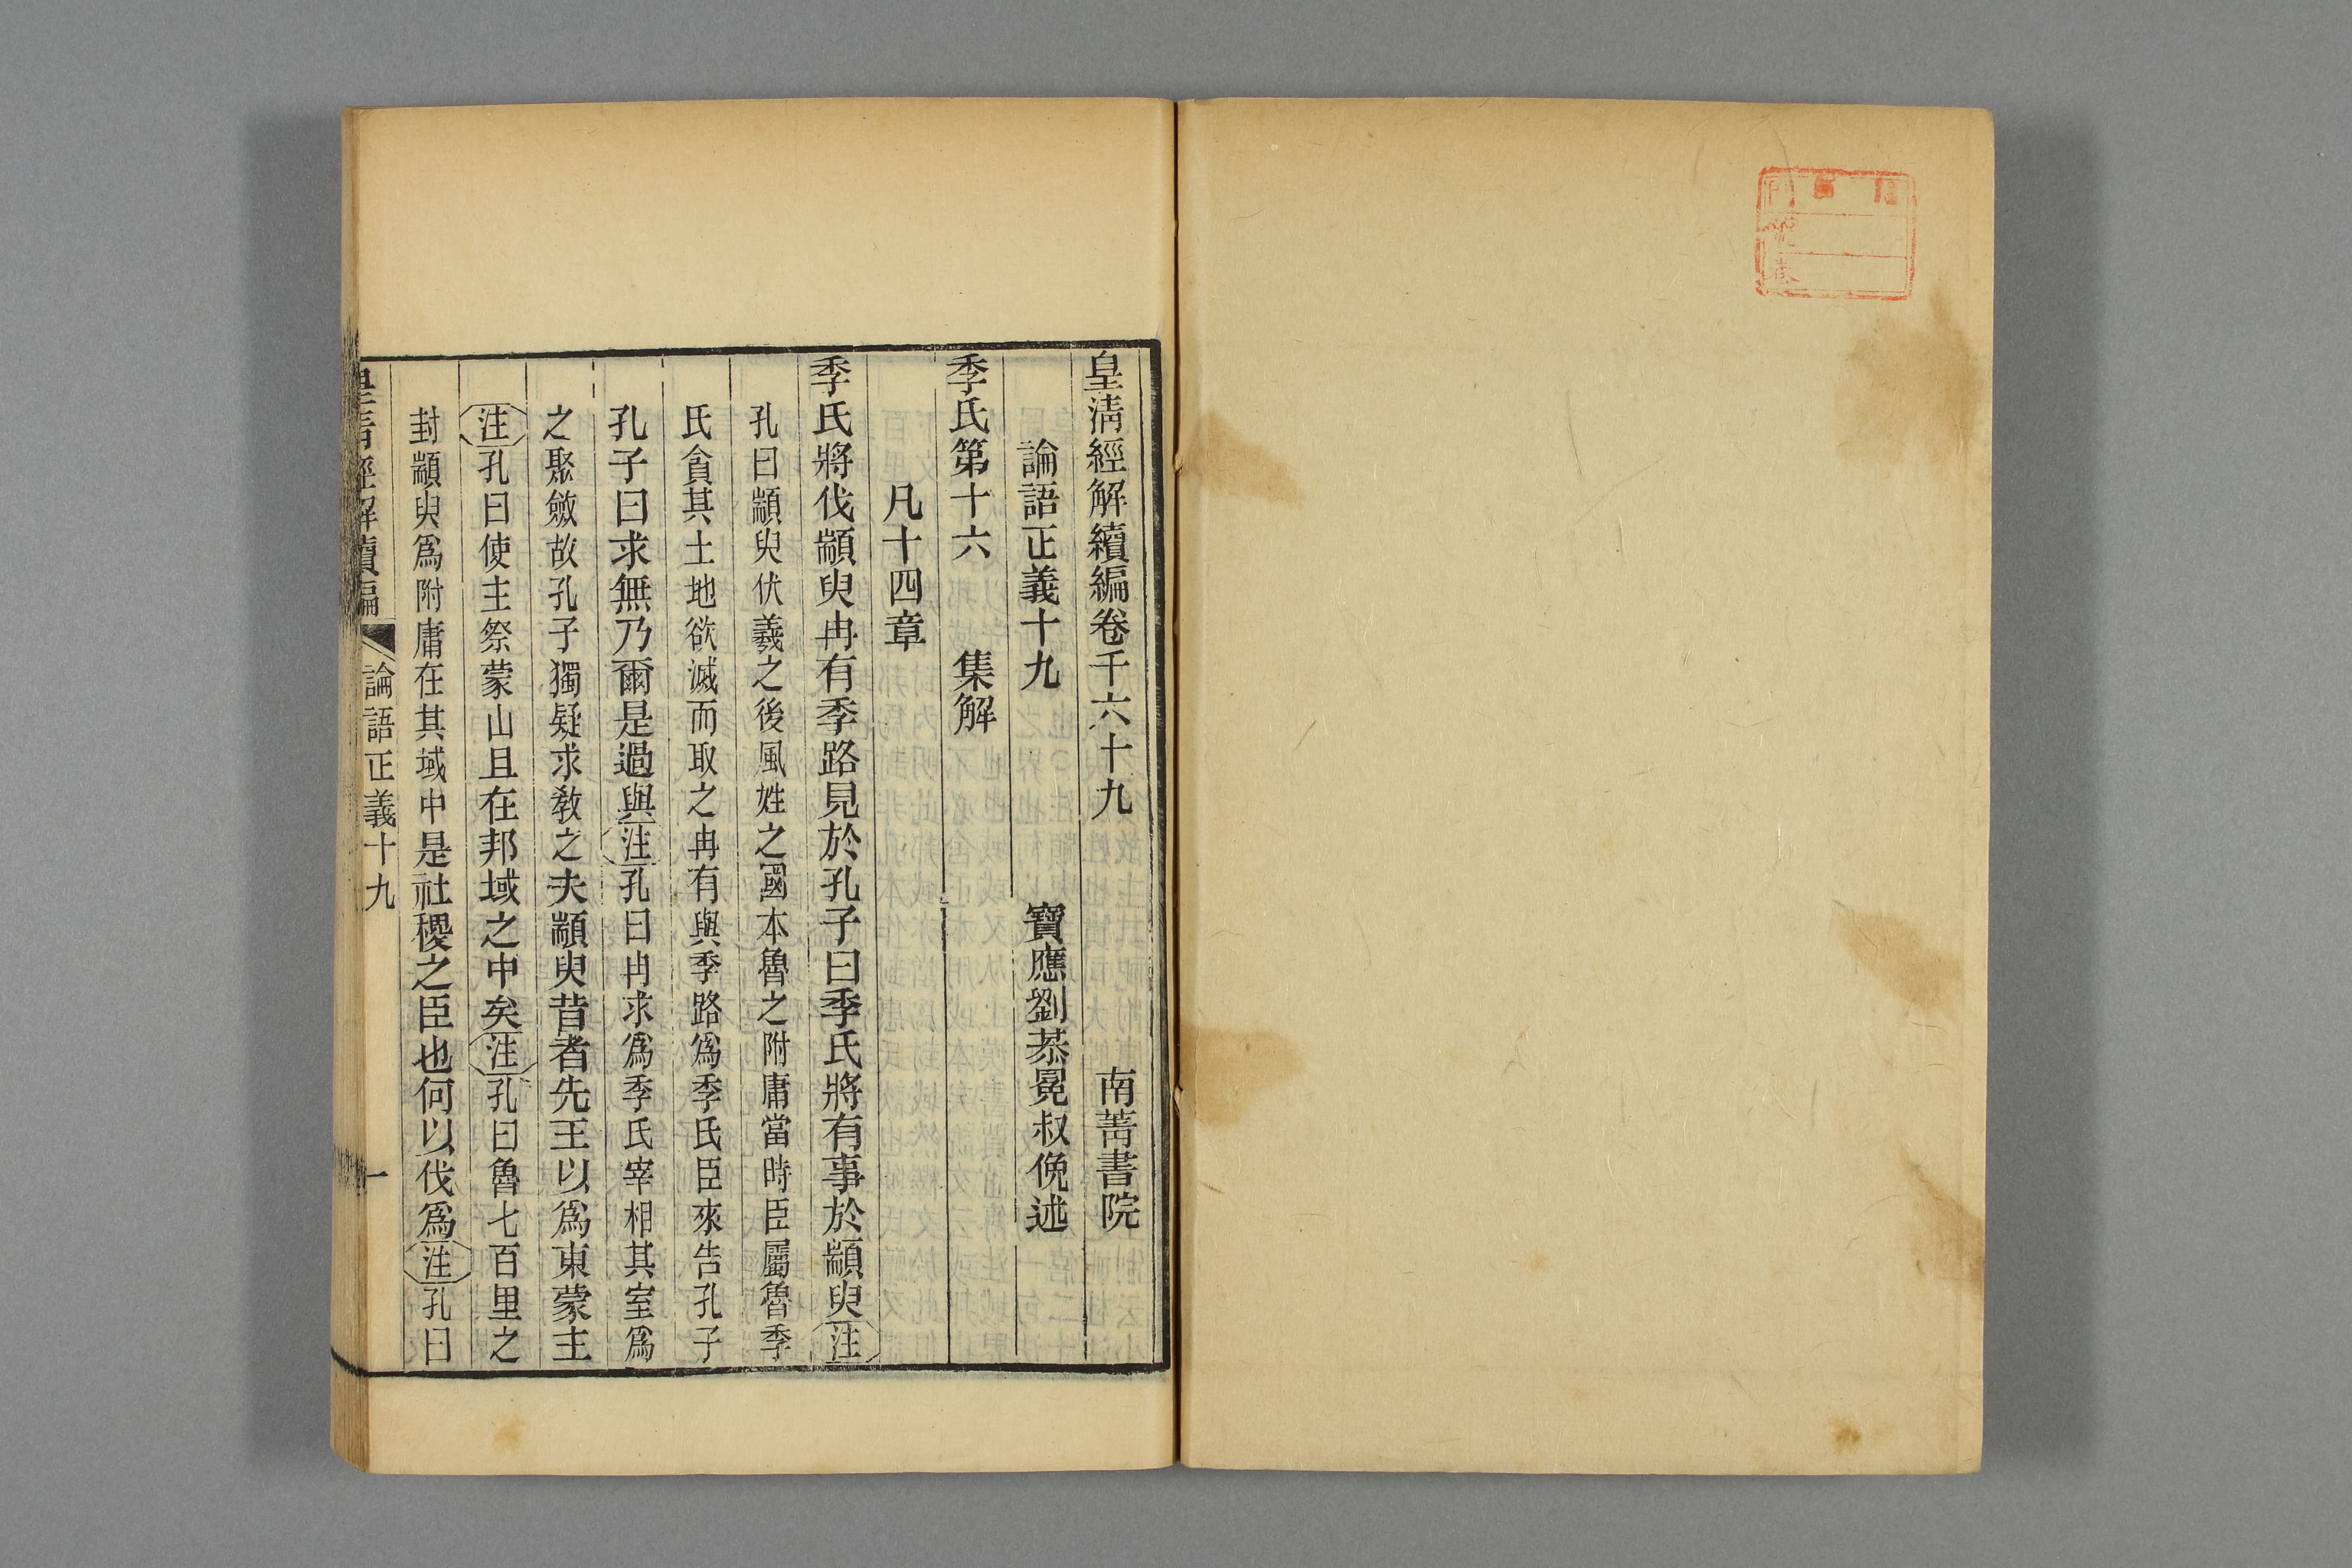 皇淸經解續編卷千六十九　南菁書院
論語正義十九　寶應劉恭冕叔俛述
季氏第十六　集解
凡十四章
季氏將伐顓臾冉有季路見於孔子曰季氏將有事於顓臾注
孔曰顓臾伏羲之後風姓之國本魯之附庸當時臣屬魯季
氏貪其土地欲滅而取之冉有與季路爲季氏臣來告孔子
孔子曰求無乃爾是過與注孔曰冉求爲季氏宰相其室爲
之聚斂故孔子獨疑求敎之夫顓臾昔者先王以爲東蒙主
注孔曰使主祭蒙山且在邦域之中矣注孔曰魯七百里之
封顓臾爲附庸在其域中是社稷之臣也何以伐爲注孔曰
皇淸經解續編　論語正義十九　一